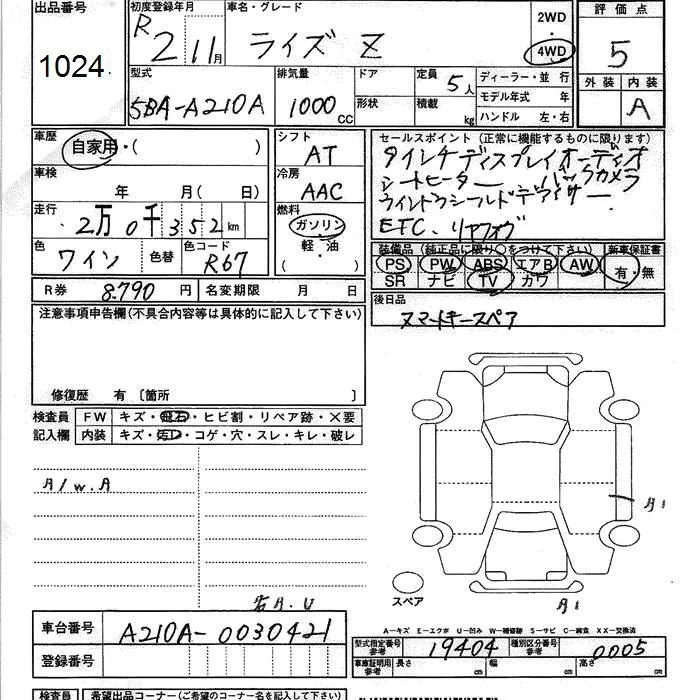 出品番号 初度登録年月 車名・グレード 2WD 評価点
1024 R 2 11月 ライズ Z 4WD 5
型式 排気量 ドア 定員 5人 ディーラー・並 行 外装 内装
5BA-A210A 1000CC 形状 積載 kg モデル年式 年 A
ハンドル 左・右
車歴 自家用・( ) シフト AT セールスポイント(正常に機能するものに限ります)
9インチディスプレイオーディオ
車検 年 月(日) 冷房 AAC シートヒーター バックカメラ
ウインドウシールドデアイサー
走行 2万0千352km 燃料 ガソリン ETC、リヤフォグ
軽・油
( )
色 ワイン 色替 色コード R67 装備品(純正品に限り○をつけて下さい) 新車保証書
PS PW ABS エアB AW 有・無
SR ナビ TV カワ
R券 8.790円 名変期限 月 日 後日品
スマートキースペア
注意事項申告欄(不具合内容等は具体的に記入して下さい)
修復歴 有〔箇所 〕
検査員 FW キズ・飛石・ヒビ割・リペア跡・×要
記入欄 内装 キズ・汚レ・コゲ・穴・スレ・キレ・破レ
A/W.A
A1
スペア
A1
若A.U
A-キズ E-エクボ U-凹み W-補修跡 S-サビ C-腐食 XX-交換済
車台番号 A210A-0030421 型式指定番号 参考 19404 種別区分番号 参考 0005
登録番号 車庫証明用 参考 長さ cm 幅 cm 高さ cm
検査員 希望出品コーナー(ご希望のコーナー名を記入して下さい)